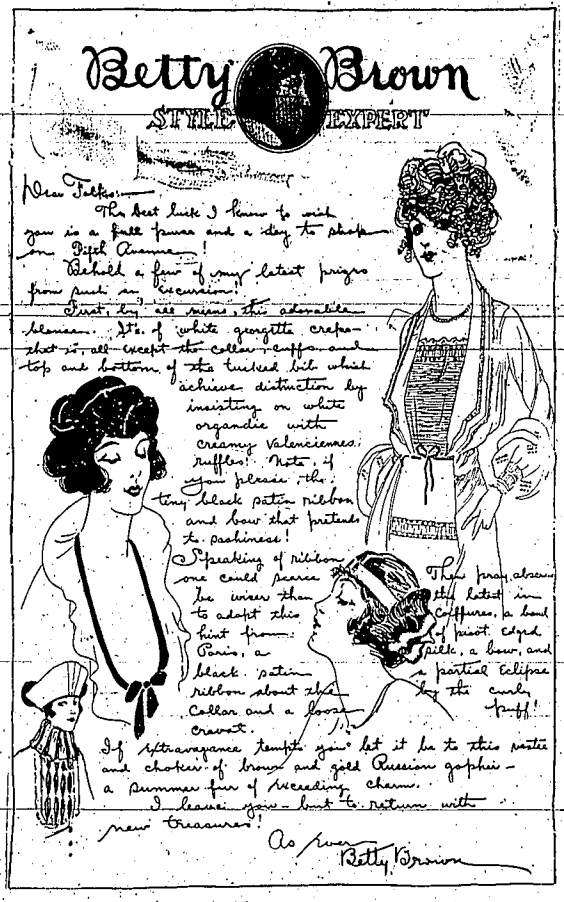 Betty Brown
STYLE EXPERT
Dear Folks:—
The best luck I know to wish
you is a full purse and a day to shop
on Fifth Avenue!
Behold a few of my latest prizes
from such an excursion!
First, by all means, this adorable
blouse. It's of white georgette crepe—
that is, all except the collar, cuffs, and
top and bottom of the tucked bib which
achieve distinction by
insisting on white
organdie with
creamy Valenciennes
ruffles! Note, if
you please the
tiny black satin ribbon
and bow that pretends
to sashiness!
Speaking of ribbon
one could scarce
be wiser than
to adapt this
hint from
Paris, a
black satin
ribbon about the
collar and a loose
cravat.
Then pray, observe
the latest in
coiffures, a band
of picot edged
silk, a bow, and
a partial eclipse
by the curly
puff!
If extravagance tempts you let it be to this vestee
and choker of brown and gold Russian gopher—
a summer fur of exceeding charm.
I leave you—but to return with
new treasures!
As ever
Betty Brown